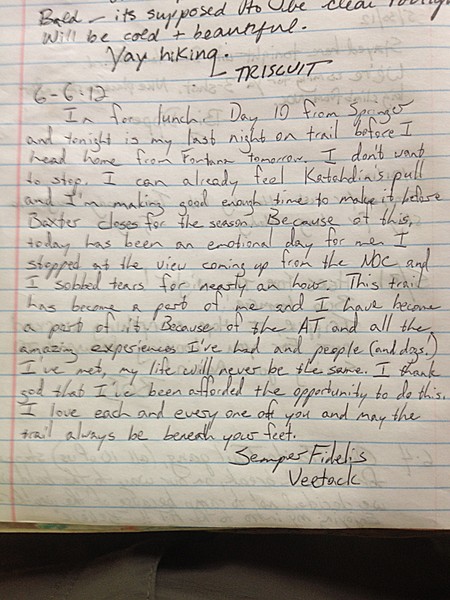 Bald - its supposed to be clear tonight
Will be cold + beautiful.
Yay hiking.
- TRISCUIT
6-6-12
In for lunch. Day 10 from Springer
and tonight is my last night on trail before I
head home from Fontana tomorrow. I don't want
to stop. I can already feel Katahdin's pull
and I'm making good enough time to make it before
Baxter closes for the season. Because of this,
today has been an emotional day for me. I
stopped at the view coming up from the NOC and
I sobbed tears for nearly an hour. This trail
has become a part of me and I have become
a part of it. Because of the AT and all the
amazing experiences I've had and people (and dogs!)
I've met, my life will never be the same. I thank
god that I've been afforded the opportunity to do this.
I love each and every one of you and may the
trail always be beneath your feet.
Semper Fidelis
Veetack